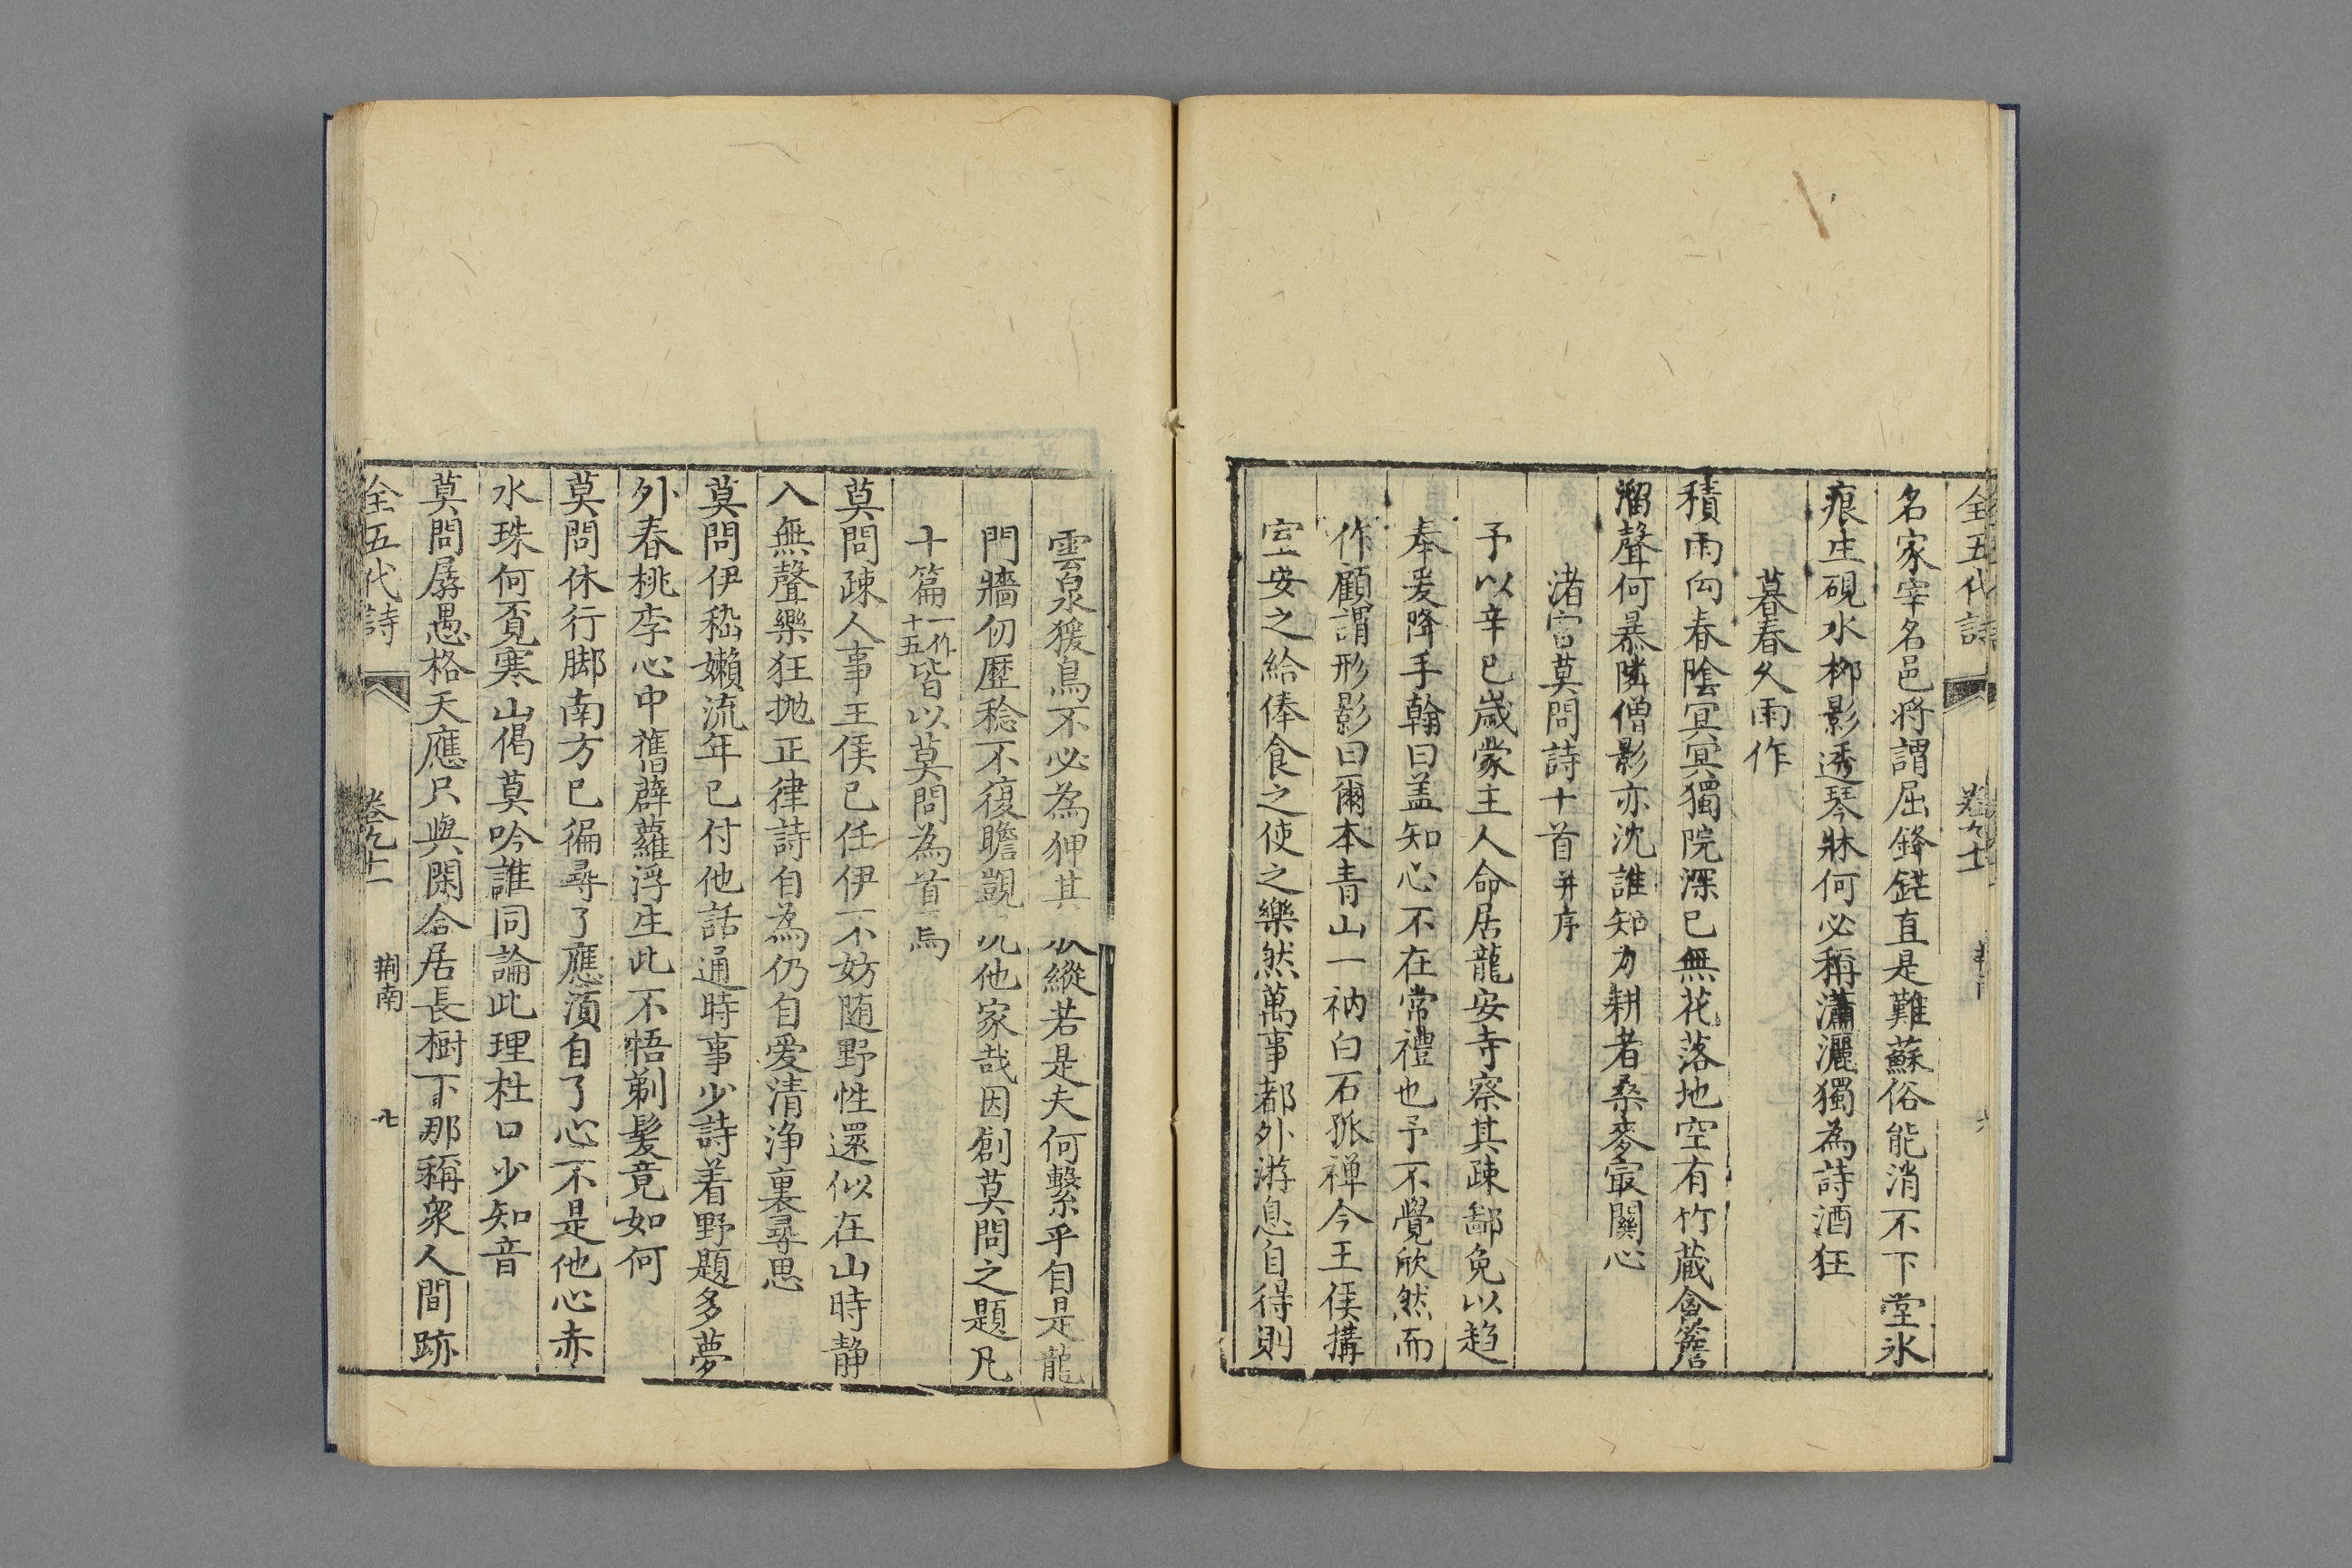 全五代詩
卷九十一
名家宰名邑將謂屈鋒鋩直是難蘇俗能消不下堂氷
痕生硯水柳影透琴牀何必稱瀟灑獨為詩酒狂
暮春久雨作
積雨向春陰冥冥獨院深已無花落地空有竹蔵禽簷
溜聲何暴隣僧影亦沈誰知力耕者桑麥最關心
渚宮莫問詩十首并序
予以辛巳歲蒙主人命居龍安寺察其疎鄙免以趋
奉爰降手翰曰盖知心不在常禮也予不覺欣然而
作顧謂形影曰爾本青山一衲白石孤禅今王侯搆
室安之給俸食之使之樂然萬事都外游息自得則
雲泉猨鳥不必為狎其放縱若是夫何繫乎自是龍
門牆仞歴稔不復瞻覬況他家哉因創莫問之題凡
十篇一作十五皆以莫問為首焉
莫問疎人事王侯已任伊不妨随野性還似在山時静
入無聲樂狂抛正律詩自為仍自爱清浄裏尋思
莫問伊嵇嬾流年已付他話通時事少詩着野題多夢
外春桃李心中舊薜蘿浮生此不悟剃髪竟如何
莫問休行脚南方已徧尋了應湏自了心不是他心赤
水珠何覓寒山偈莫吟誰同論此理杜口少知音
莫問孱愚格天應只與閑合居長樹下那稱衆人間跡
全五代詩
卷九十一
荆南
七